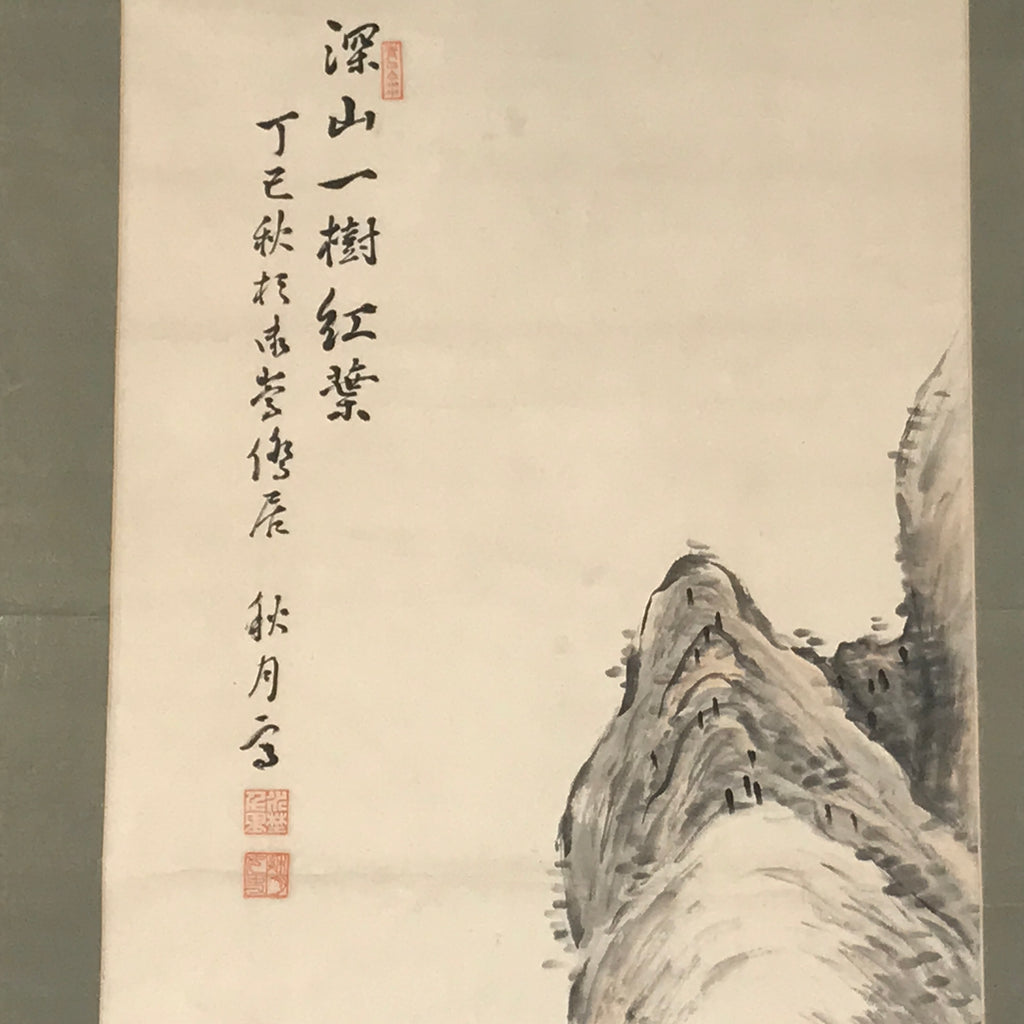 深山一樹紅葉
丁巳秋於僑居 秋月写